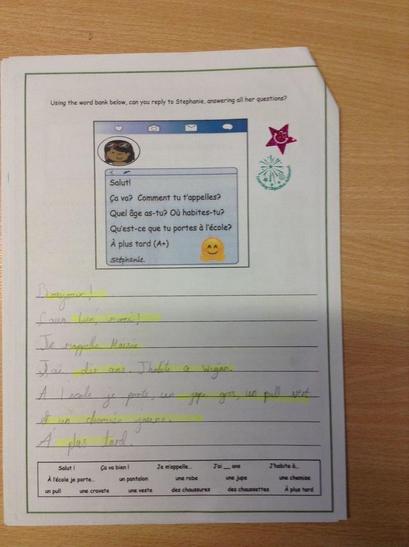 Using the word bank below, can you reply to Stephanie, answering all her questions?
Salut!
Ça va? Comment tu t'appelles?
Quel âge as-tu? Où habites-tu?
Qu'est-ce que tu portes à l'école?
À plus tard (A+)
Stéphanie.
Bonjour!
Ça va bien, merci!
Je m'appelle Maisie
J'ai dix ans. J'habite a Wigan.
A l ecole je porte, un jupe gris, un pull vert
et un chemise jaune.
A plus tard.
Salut ! Ça va bien ! Je m'appelle... J'ai __ ans J'habite à...
À l'école je porte... un pantalon une robe une jupe une chemise
un pull une cravate une veste des chaussures des chaussettes À plus tard